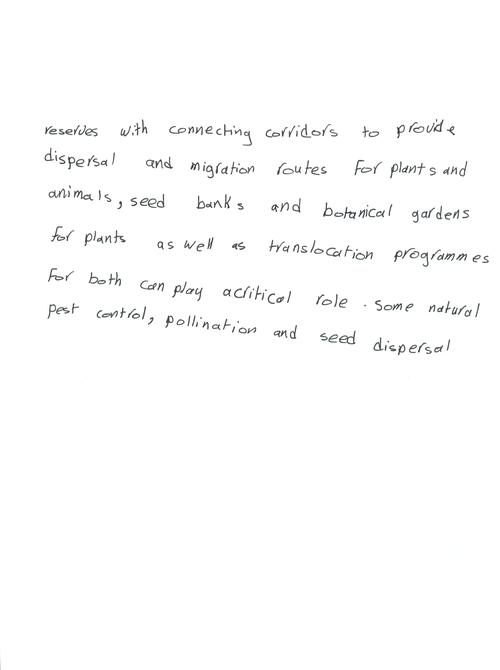 reserves with connecting corridors to provide
dispersal and migration routes For plants and
animals, seed banks and botanical gardens
for plants as well as translocation programmes
For both can play a critical role. Some natural
pest control, pollination and seed dispersal